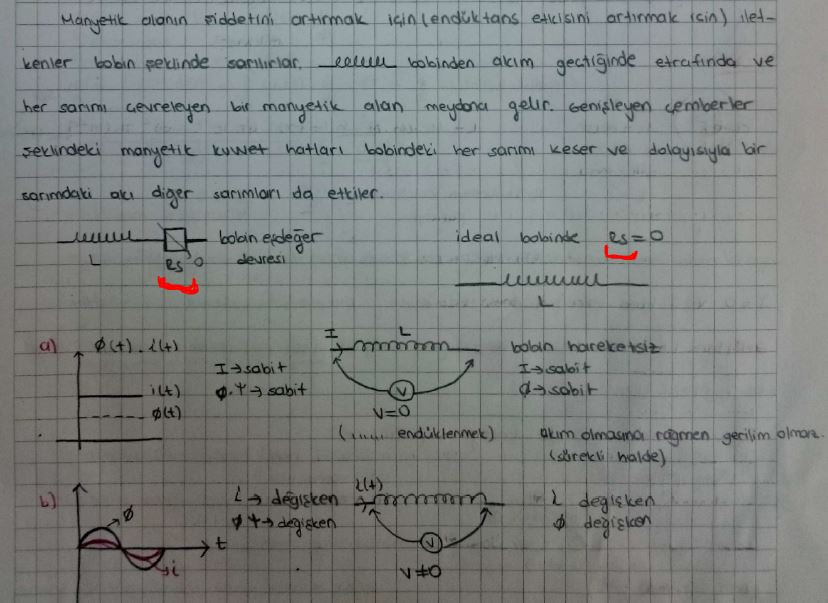 Manyetik alanın şiddetini artırmak için (endüktans etkisini artırmak için) ilet-
kenler bobin şeklinde sarılırlar. bobinden akım geçtiğinde etrafında ve
her sarımı çevreleyen bir manyetik alan meydana gelir. Genişleyen çemberler
şeklindeki manyetik kuvvet hatları bobindeki her sarımı keser ve dolayısıyla bir
sarımdaki akı diğer sarımları da etkiler.
L Rs bobin eşdeğer
devresi
ideal bobinde Rs=0
L
a) φ(t).i(t)
i(t)
φ(t)
I→sabit
φ.Ψ→sabit
I L
V
V=0
(...... endüklenmek)
bobin hareketsiz
I→sabit
φ→sabit
akım olmasına rağmen gerilim olmaz.
(sürekli halde)
b) φ
t
i
i→ değişken
φ Ψ→değişken
i(t)
V
V≠0
i değişken
φ değişken